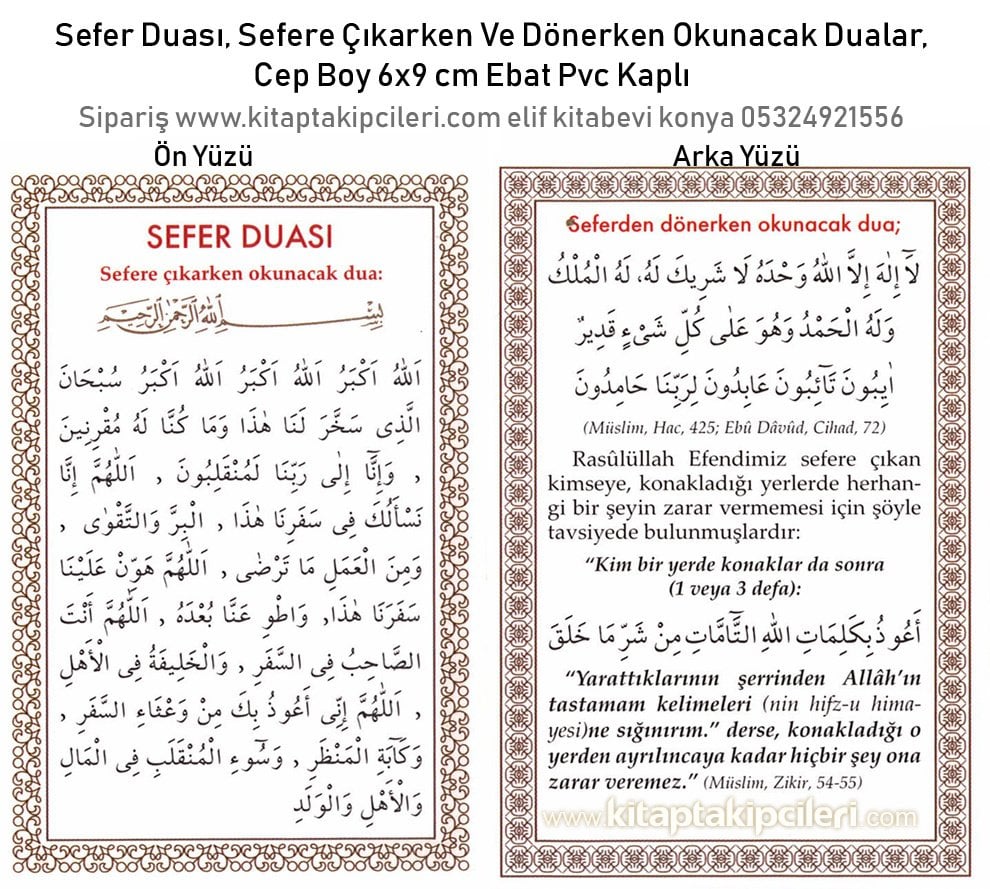 Sefer Duası, Sefere Çıkarken Ve Dönerken Okunacak Dualar,
Cep Boy 6x9 cm Ebat Pvc Kaplı
Sipariş www.kitaptakipcileri.com elif kitabevi konya 05324921556
Ön Yüzü
SEFER DUASI
Sefere çıkarken okunacak dua:
بِسْمِ اللهِ الرَّحْمٰنِ الرَّحِيمِ
اَللهُ اَكْبَرُ اَللهُ اَكْبَرُ اَللهُ اَكْبَرُ سُبْحَانَ
الَّذِى سَخَّرَ لَنَا هٰذَا وَمَا كُنَّا لَهُ مُقْرِنِينَ
, وَاِنَّٓا اِلٰى رَبِّنَا لَمُنْقَلِبُونَ , اَللّٰهُمَّ اِنَّا
نَسْأَلُكَ فِى سَفَرِنَا هٰذَا , الْبِرَّ وَالتَّقْوٰى ,
وَمِنَ الْعَمَلِ مَا تَرْضٰى , اَللّٰهُمَّ هَوِّنْ عَلَيْنَا
سَفَرَنَا هٰذَا, وَاطْوِ عَنَّا بُعْدَهُ , اَللّٰهُمَّ أَنْتَ
الصَّاحِبُ فِى السَّفَرِ , وَالْخَلِيفَةُ فِى الْأَهْلِ
, اَللّٰهُمَّ اِنِّى أَعُوذُ بِكَ مِنْ وَعْثَاءِ السَّفَرِ ,
وَكَآبَةِ الْمَنْظَرِ , وَسُوٓءِ الْمُنْقَلَبِ فِى الْمَالِ
وَالْأَهْلِ وَالْوَلَدِ
Arka Yüzü
Seferden dönerken okunacak dua;
لَٓا اِلٰهَ اِلَّا اللهُ وَحْدَهُ لَا شَرِيكَ لَهُ، لَهُ الْمُلْكُ
وَلَهُ الْحَمْدُ وَهُوَ عَلٰى كُلِّ شَىْءٍ قَدِيرٌ
اٰيِبُونَ تَٓائِبُونَ عَابِدُونَ لِرَبِّنَا حَامِدُونَ
(Müslim, Hac, 425; Ebû Dâvûd, Cihad, 72)
Rasûlüllah Efendimiz sefere çıkan
kimseye, konakladığı yerlerde herhan-
gi bir şeyin zarar vermemesi için şöyle
tavsiyede bulunmuşlardır:
“Kim bir yerde konaklar da sonra
(1 veya 3 defa):
أَعُوذُ بِكَلِمَاتِ اللهِ التَّٓامَّاتِ مِنْ شَرِّ مَا خَلَقَ
“Yarattıklarının şerrinden Allâh’ın
tastamam kelimeleri (nin hifz-u hima-
yesi)ne sığınırım.” derse, konakladığı o
yerden ayrılıncaya kadar hiçbir şey ona
zarar veremez.” (Müslim, Zikir, 54-55)
www.kitaptakipcileri.com